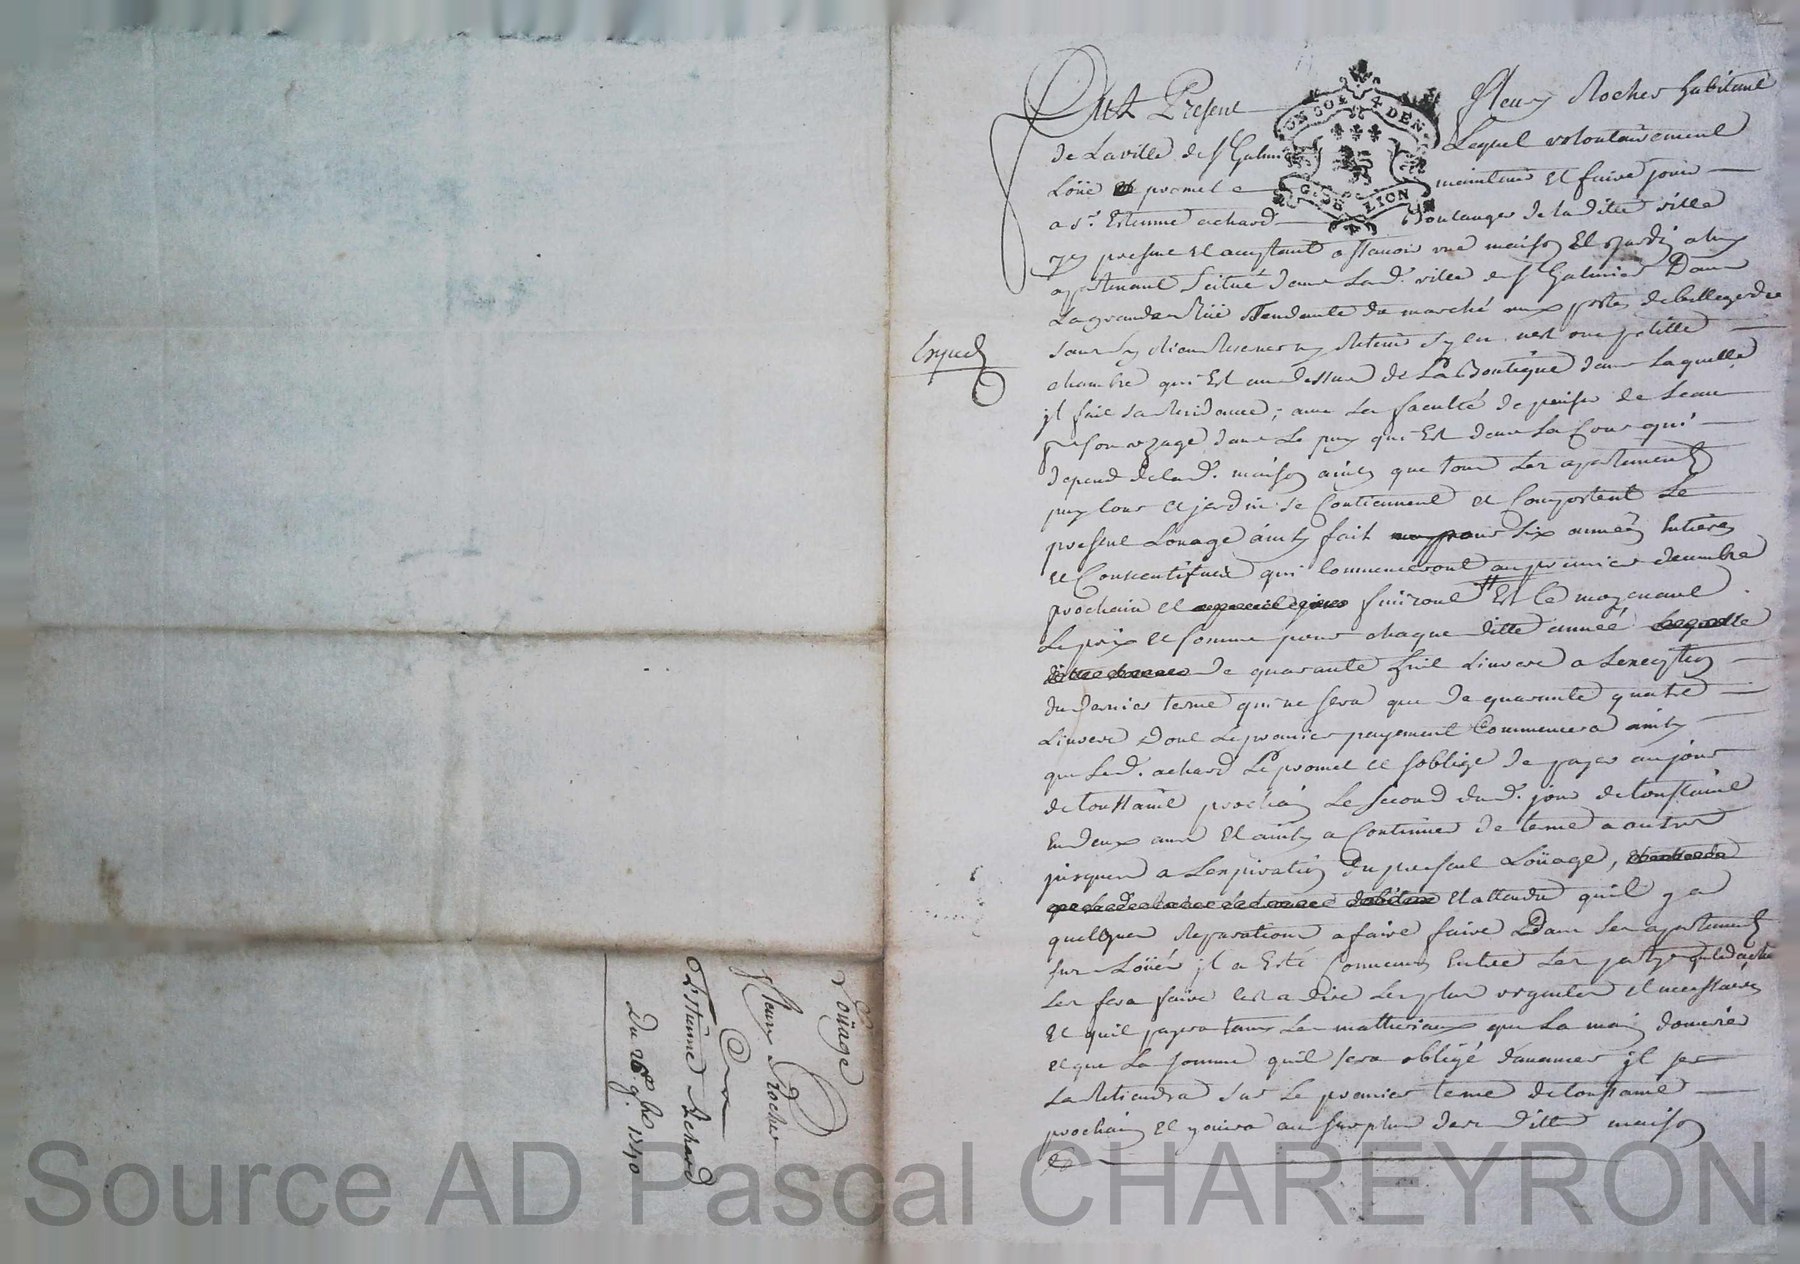 Fut Present Fleury Rocher habitant
UN SOL 4 DEN.
G. DE LION
de La ville de st Galmier Lequel volontairement
Loüe et promet maintenir et faire jouir
a sr. Estienne achard Boulanger de la ditte ville
present et acceptant assavoir une maison et jardin a luy
apartenant scitué dans La d. ville de st Galmier Dans
La grande Rüe Tendante du marché aux portes de bellegarde
sans y rien Reserver ny Retenir sy ce n'est une petitte
Exped
chambre qui Est au dessus de La Boutique dans Laquelle
jl fait sa Residance; avec La faculté de puiser de Leau
pr son uzage dans Le puy qui Est dans La Cour qui
depend de la d. maison ainsy que tous Les apartements
puy Cour et jardin se Contiennent et Comportent Le
present Louage ainsy fait pour six années Entieres
et Consecutifves qui Commenceront au premier decembre
prochain et finiront Et Ce moyenant
Le prix et somme pour chaque ditte année
de quarante huit Livres a Lexception
du dernier terme qui ne sera que de quarante quatre
Livres Dont Le premier payement Commencera ainsy
que Le d. achard Le promet et soblige de payer au jour
de toussaint prochain Le second du d. jour de toussaint
En deux ans Et ainsy a Continuer de terme a autre
jusques a Lexpiration du present Loüage,
Et attendu quil y a
quelques Reparations a faire faire Dans Les apartements
sus Loüés jl a Esté Convenu Entre Les partyes
Les fera faire cest a dire Les plus urgentes et necessaires
Et quil payera tant Les matteriaux que La main doeuvre
et que La somme quil sera obligé davancer jl se
La Retiendra sur Le premier terme de toussaint
prochain et jouira au surplus de la ditte maison
Loüage
Fleury Rocher
a
Estienne Achard
Du 26e 9bre 1740
Source AD Pascal CHAREYRON